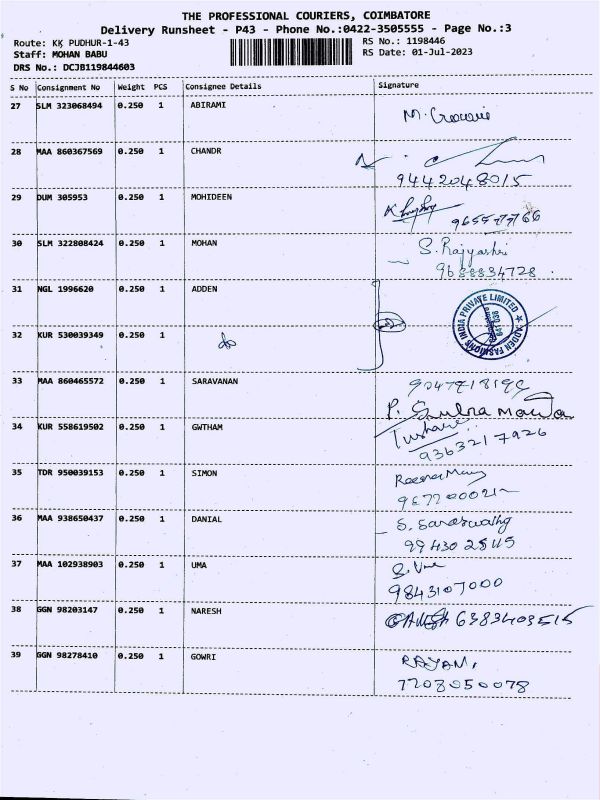 THE PROFESSIONAL COURIERS, COIMBATORE
Delivery Runsheet - P43 - Phone No.:0422-3505555 - Page No.:3
Route: KK PUDHUR-1-43 RS No.: 1198446
Staff: MOHAN BABU RS Date: 01-Jul-2023
DRS No.: DCJB119844603
S No Consignment No Weight PCS Consignee Details Signature
27 SLM 323068494 0.250 1 ABIRAMI
28 MAA 860367569 0.250 1 CHANDR
9442048015
29 DUM 305953 0.250 1 MOHIDEEN
30 SLM 322808424 0.250 1 MOHAN S. Rajyashri
9688834728
31 NGL 1996620 0.250 1 ADDEN
ADDEN FASHIONS INDIA PRIVATE LIMITED
32 KUR 530039349 0.250 1
33 MAA 860465572 0.250 1 SARAVANAN
34 KUR 558619502 0.250 1 GWTHAM
9363217926
35 TDR 950039153 0.250 1 SIMON
36 MAA 938650437 0.250 1 DANIAL S. Saraswathy
37 MAA 102938903 0.250 1 UMA S. Uma
9843107000
38 GGN 98203147 0.250 1 NARESH 6383403515
39 GGN 98278410 0.250 1 GOWRI